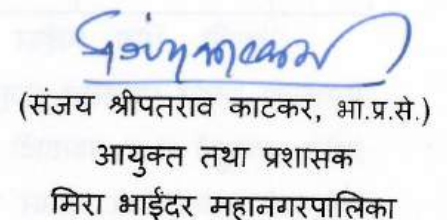 (संजय श्रीपतराव काटकर, भा.प्र.से.)
आयुक्त तथा प्रशासक
मिरा भाईंदर महानगरपालिका